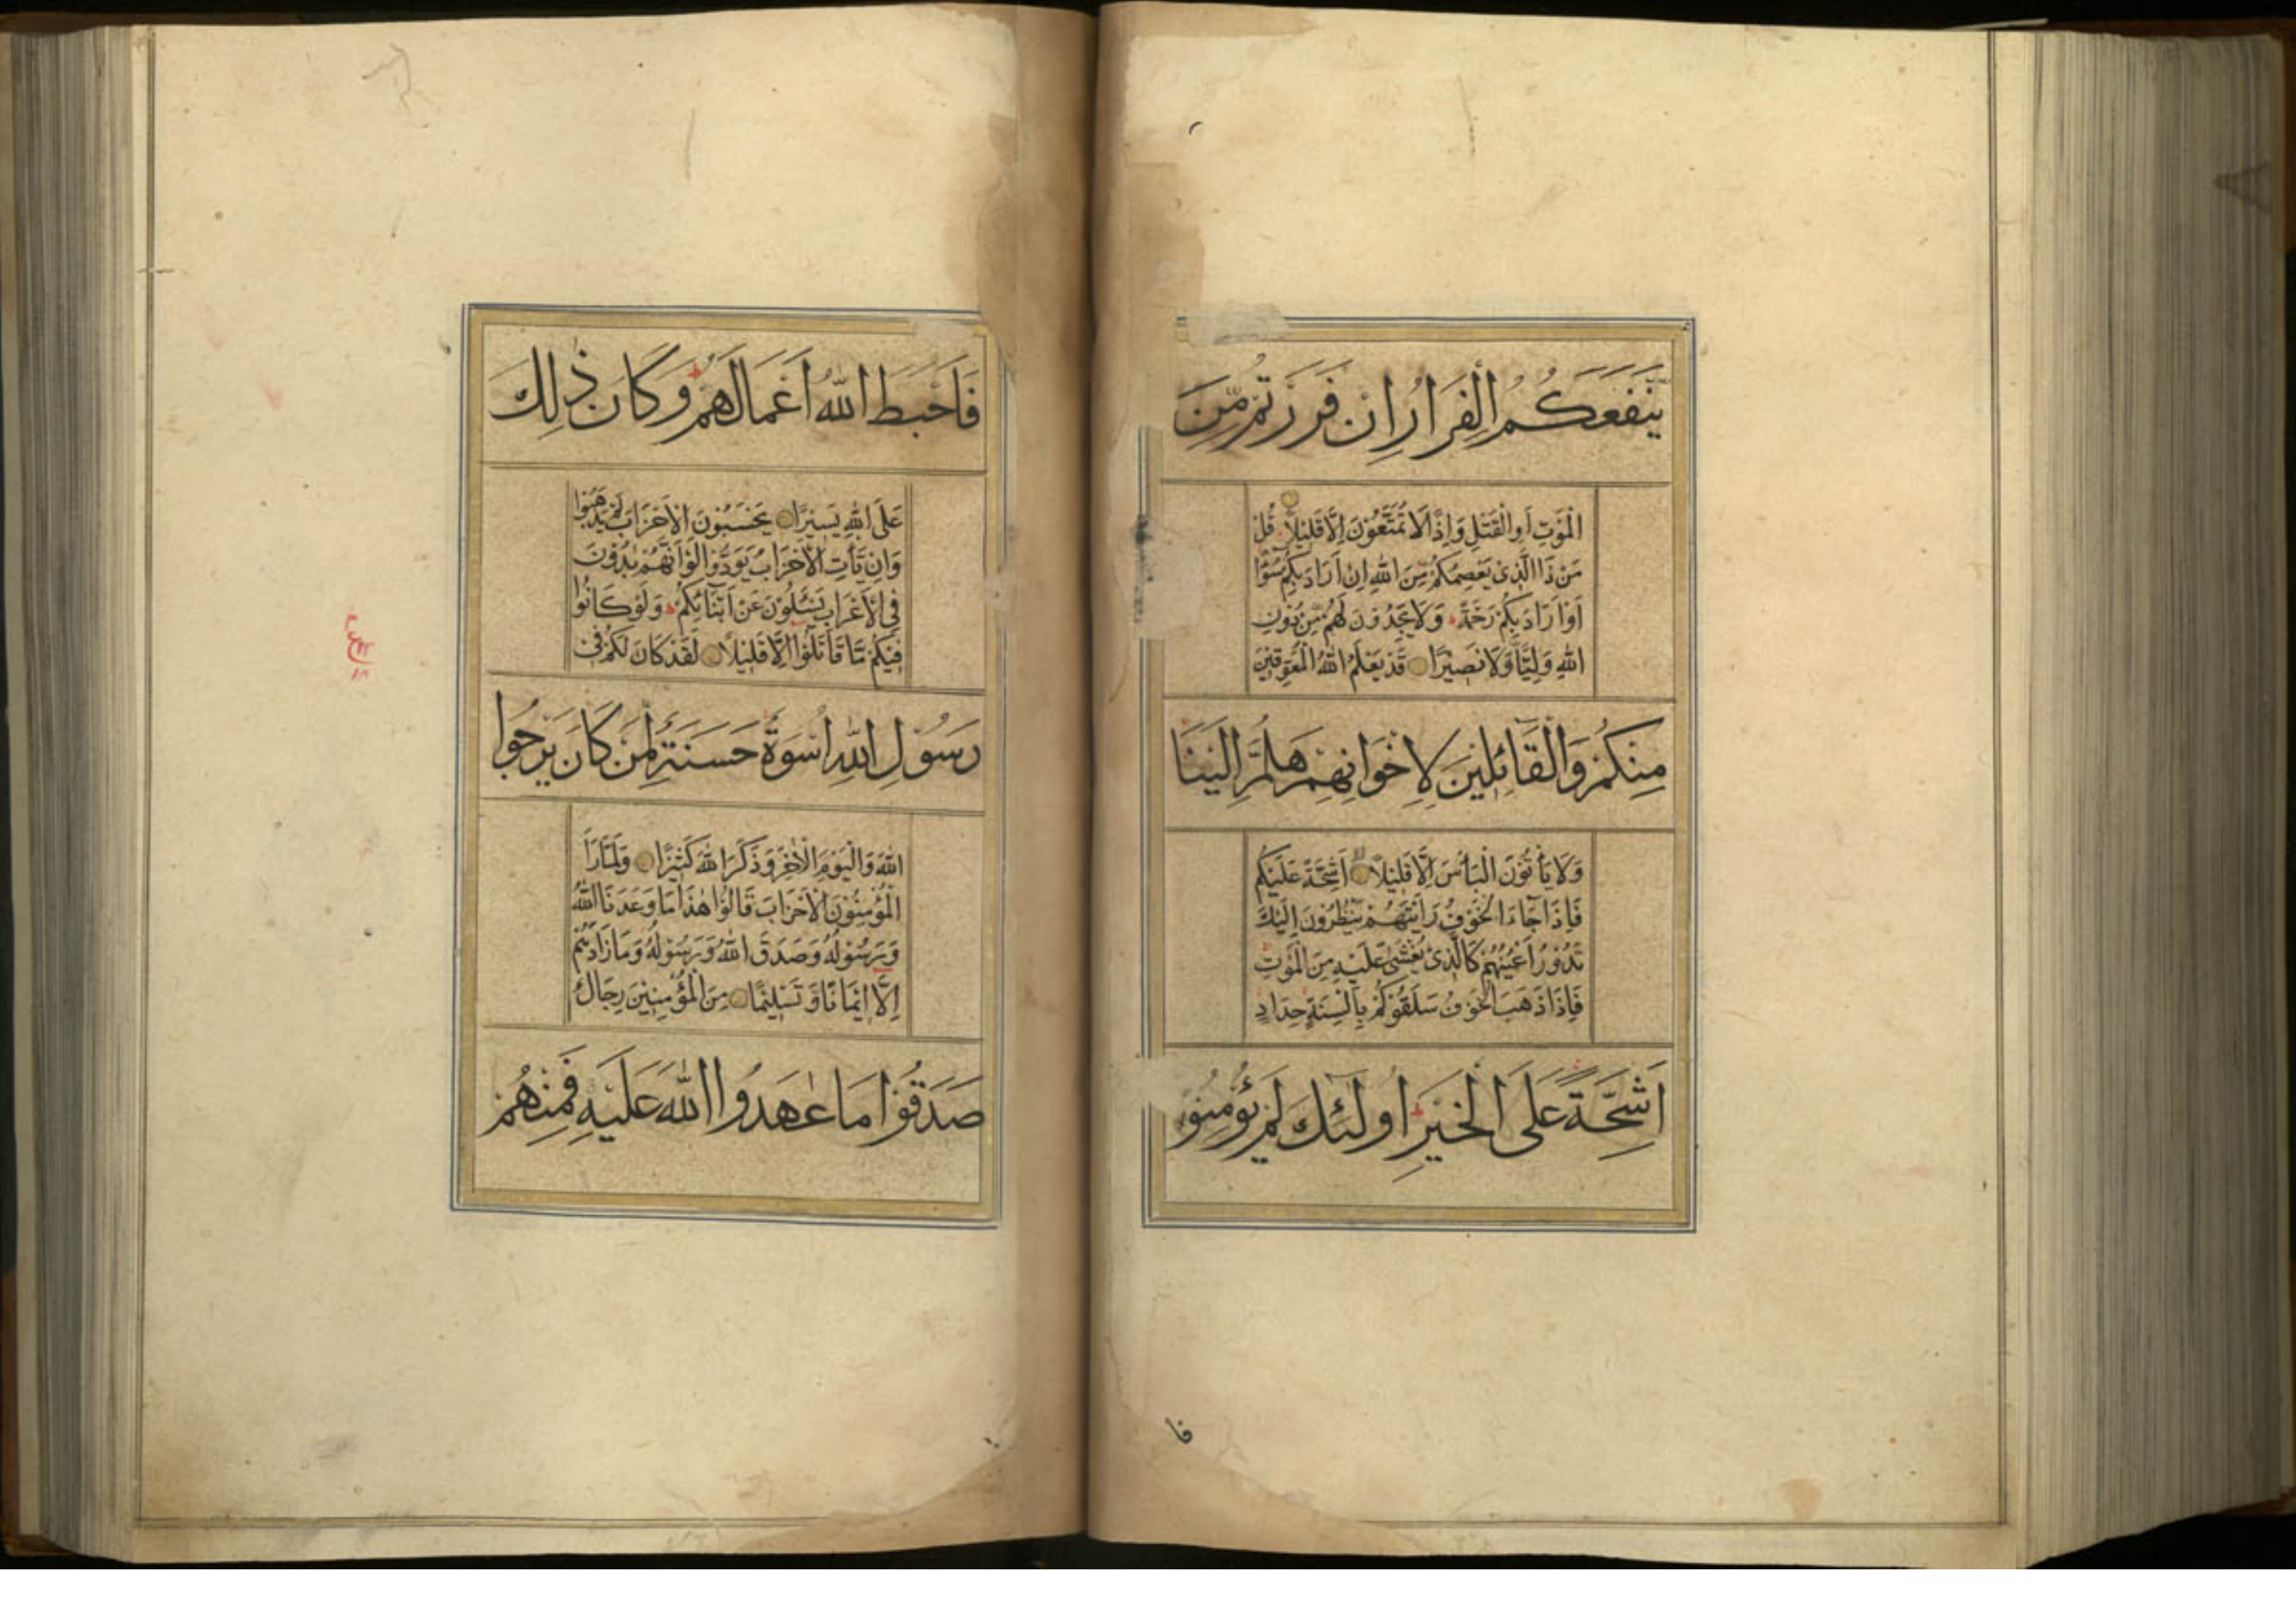 يَنْفَعَكُمُ الْفِرَارُ اِنْ فَرَرْتُمْ مِّنَ
الْمَوْتِ اَوِ الْقَتْلِ وَاِذًا لَا تُمَتَّعُوْنَ اِلَّا قَلِيْلًا قُلْ
مَنْ ذَا الَّذِىْ يَعْصِمُكُمْ مِّنَ اللّٰهِ اِنْ اَرَادَ بِكُمْ سُوْٓءًا
اَوْ اَرَادَ بِكُمْ رَحْمَةً ط وَلَا يَجِدُوْنَ لَهُمْ مِّنْ دُوْنِ
اللّٰهِ وَلِيًّا وَّلَا نَصِيْرًا قَدْ يَعْلَمُ اللّٰهُ الْمُعَوِّقِيْنَ
مِنْكُمْ وَالْقَآئِلِيْنَ لِاِخْوَانِهِمْ هَلُمَّ اِلَيْنَا
وَلَا يَأْتُوْنَ الْبَأْسَ اِلَّا قَلِيْلًا اَشِحَّةً عَلَيْكُمْ
فَاِذَا جَآءَ الْخَوْفُ رَاَيْتَهُمْ يَنْظُرُوْنَ اِلَيْكَ
تَدُوْرُ اَعْيُنُهُمْ كَالَّذِىْ يُغْشٰى عَلَيْهِ مِنَ الْمَوْتِ
فَاِذَا ذَهَبَ الْخَوْفُ سَلَقُوْكُمْ بِاَلْسِنَةٍ حِدَادٍ
اَشِحَّةً عَلَى الْخَيْرِ ط اُولٰٓئِكَ لَمْ يُؤْمِنُوْا
فا
فَاَحْبَطَ اللّٰهُ اَعْمَالَهُمْ ط وَكَانَ ذٰلِكَ
عَلَى اللّٰهِ يَسِيْرًا يَحْسَبُوْنَ الْاَحْزَابَ لَمْ يَذْهَبُوْا
وَاِنْ يَّأْتِ الْاَحْزَابُ يَوَدُّوْا لَوْ اَنَّهُمْ بَادُوْنَ
فِى الْاَعْرَابِ يَسْئَلُوْنَ عَنْ اَنْبَآئِكُمْ ط وَلَوْ كَانُوْا
فِيْكُمْ مَّا قَاتَلُوْٓا اِلَّا قَلِيْلًا لَقَدْ كَانَ لَكُمْ فِىْ
رَسُوْلِ اللّٰهِ اُسْوَةٌ حَسَنَةٌ لِّمَنْ كَانَ يَرْجُوا
اللّٰهَ وَالْيَوْمَ الْاٰخِرَ وَذَكَرَ اللّٰهَ كَثِيْرًا وَلَمَّا رَاَ
الْمُؤْمِنُوْنَ الْاَحْزَابَ قَالُوْا هٰذَا مَا وَعَدَنَا اللّٰهُ
وَرَسُوْلُهُ وَصَدَقَ اللّٰهُ وَرَسُوْلُهُ وَمَا زَادَهُمْ
اِلَّا اِيْمَانًا وَّتَسْلِيْمًا مِنَ الْمُؤْمِنِيْنَ رِجَالٌ
صَدَقُوْا مَا عٰهَدُوا اللّٰهَ عَلَيْهِ فَمِنْهُمْ